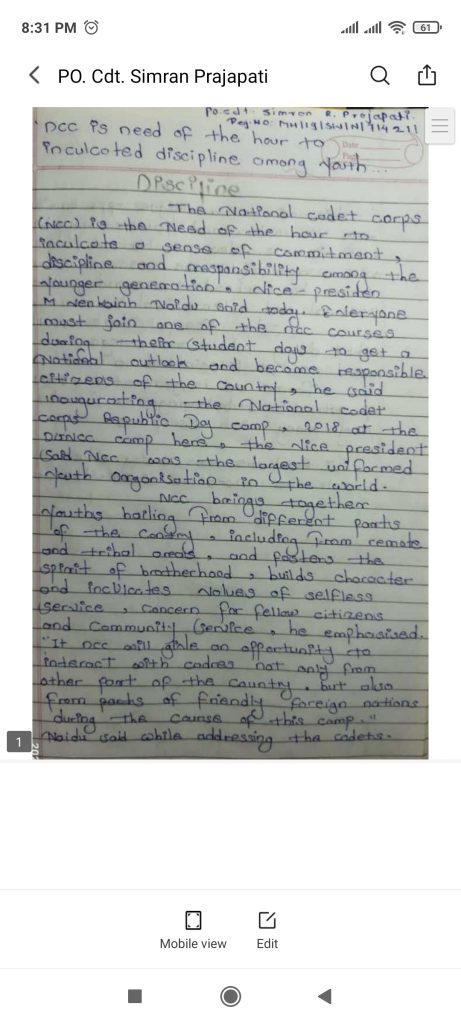 8:31 PM
61
PO. Cdt. Simran Prajapati
Po.cdt. Simran R. Prajapati.
Reg.No. MH|19|SW|N|714211
Date
Page
'ncc is need of the hour to
inculcated discipline among Youth...
Discipline
The National cadet corps
(NCC) is the Need of the hour to
inculcate a sense of commitment,
discipline and responsibility among the
younger generation. Vice-presiden
M Venkaiah Naidu said today. Everyone
must join one of the ncc courses
during their student days to get a
National outlook and become responsible
citizens of the country, he said
inaugurating the National cadet
corps Republic Day camp, 2018 at the
camp here, the Vice president
said NCC was the largest uniformed
youth organisation in the world.
NCC brings together
youths hailing from different parts
of the country, including from remote
and tribal areas, and fosters the
spirit of brotherhood, builds character
and values of selfless
service, concern for fellow citizens
and community service, he emphasised.
"It ncc will give an opportunity to
interact with cadres not only from
other part of the country, but also
from of friendly foreign nations
during the cause of this camp."
Naidu said while addressing the cadets.
1
Mobile view
Edit